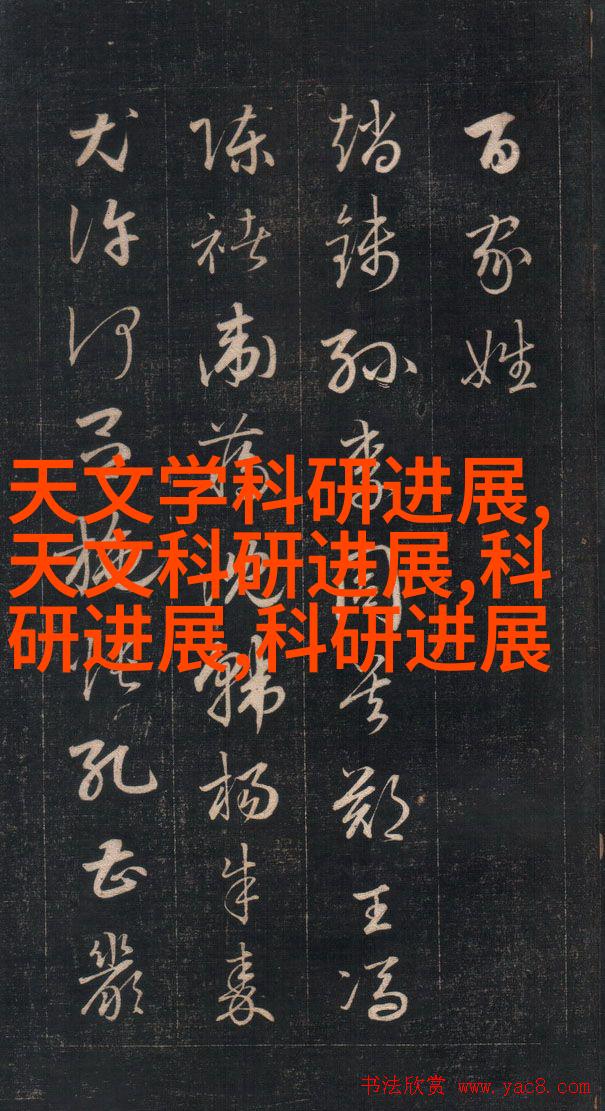 百家姓
趙錢孫李周吴鄭王馮
陳褚衛蔣沈韓楊朱秦
尤許何吕施張孔曹嚴
天文学科研进展,
天文科研进展,科
研进展,科研进展
书法欣赏 www.yac8.com